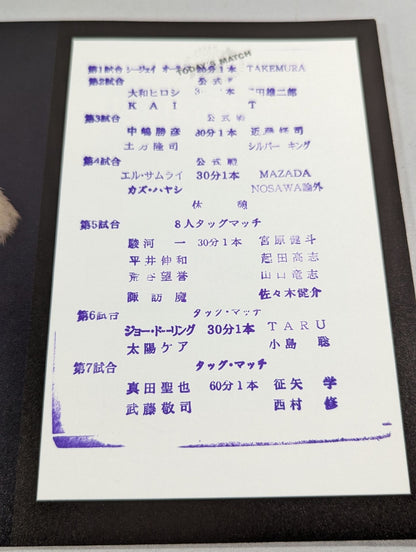 TODAY'S MATCH
第1試合 シージェイ 30分1本 TAKEMURA
第2試合 公式
大和ヒロシ 雄二郎
KAI T
第3試合 公式
中嶋勝彦 30分1本 近藤修司
土方隆司 シルバー キング
第4試合 公式戦
エル・サムライ 30分1本 MAZADA
カズ・ハヤシ NOSAWA論外
休憩
第5試合 8人タッグマッチ
駿河 一 30分1本 宮原健斗
平井伸和 起田高志
荒谷望誉 山口竜志
諏訪魔 佐々木健介
第6試合 タッグ・マッチ
ジョー・ドーリング 30分1本 TARU
太陽ケア 小島 聡
第7試合 タッグ・マッチ
真田聖也 60分1本 征矢 学
武藤敬司 西村 修